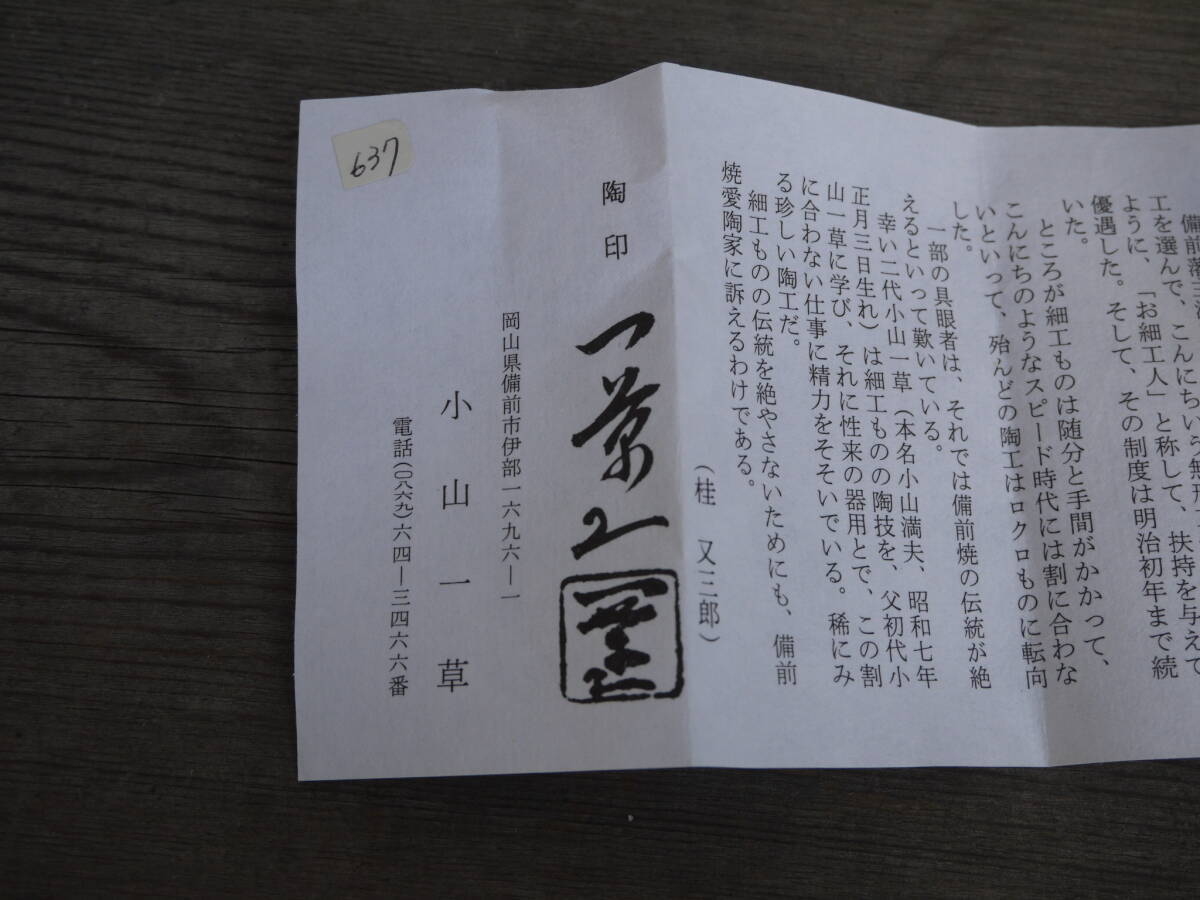 備前藩
工を選んで、こんにちいう無形
ように、「お細工人」と称して、扶持を与えて
優遇した。そして、その制度は明治初年まで続
いた。
ところが細工ものは随分と手間がかかって、
こんにちのようなスピード時代には割に合わな
いといって、殆んどの陶工はロクロものに転向
した。
一部の具眼者は、それでは備前焼の伝統が絶
えるといって歎いている。
幸い二代小山一草(本名小山満夫、昭和七年
正月三日生れ)は細工ものの陶技を、父初代小
山一草に学び、それに性来の器用とで、この割
に合わない仕事に精力をそそいでいる。稀にみ
る珍しい陶工だ。
細工ものの伝統を絶やさないためにも、備前
焼愛陶家に訴えるわけである。
(桂 又三郎)
陶印
一草
岡山県備前市伊部一六九六―一
小山一草
電話(〇八六九)六四―三四六六番
637